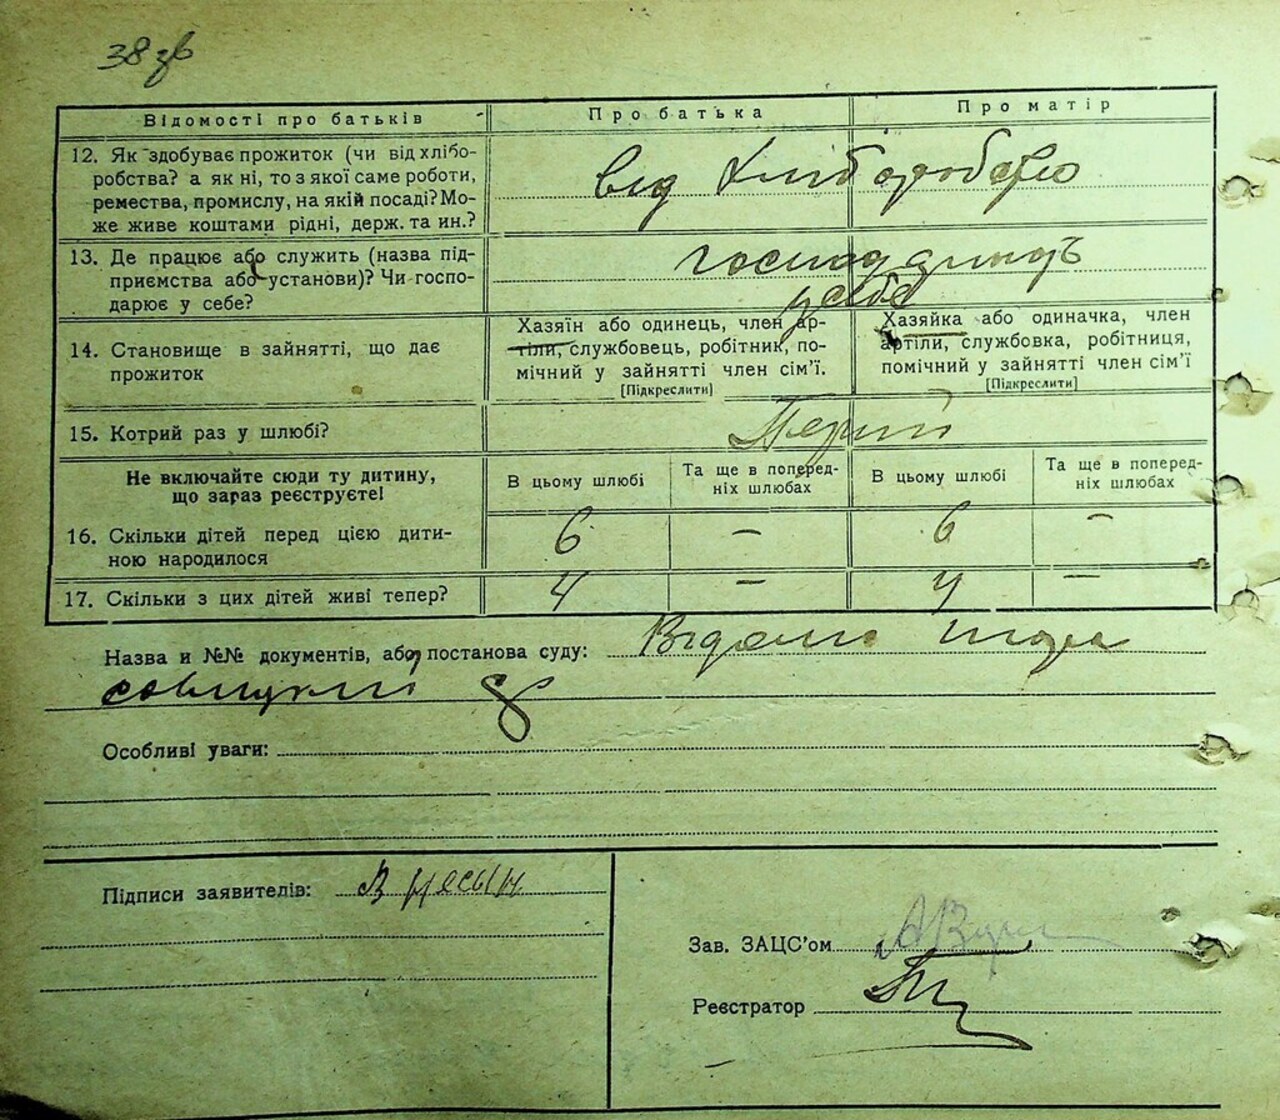 38 зв
Відомості про батьків
Про батька
Про матір
12. Як здобуває прожиток (чи від хлібо-
робства? а як ні, то з якої саме роботи,
ремества, промислу, на якій посаді? Мо-
же живе коштами рідні, держ. та ин.?
від хліборобство
13. Де працює або служить (назва під-
приємства або установи)? Чи госпо-
дарює у себе?
у себе
14. Становище в зайнятті, що дає
прожиток
Хазяїн або одинець, член ар-
тіли, службовець, робітник, по-
мічний у зайнятті член сім'ї.
[Підкреслити]
Хазяйка або одиначка, член
артіли, службовка, робітниця,
помічний у зайнятті член сім'ї
[Підкреслити]
15. Котрий раз у шлюбі?
Перший
Не включайте сюди ту дитину,
що зараз реєструєте!
В цьому шлюбі
Та ще в поперед-
ніх шлюбах
В цьому шлюбі
Та ще в поперед-
ніх шлюбах
16. Скільки дітей перед цією дити-
ною народилося
6 — 6 —
17. Скільки з цих дітей живі тепер?
4 — 4 —
Назва и №№ документів, або постанова суду:
Особливі уваги:
Підписи заявителів:
Зав. ЗАЦС'ом
Реєстратор